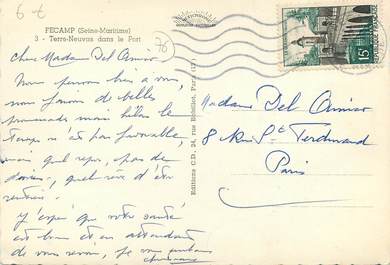 6 €
FECAMP (Seine-Maritime)
3 - Terre-Neuvas dans le Port
Chère Madame Del Amiso
Nous pensons bien à vous,
nous faisons de belles
promenades mais hélas le
temps n'est pas favorable,
mais quel repos, pas de
devoirs, quel rêve d'être
rentiers.
J'espère que votre santé
est bonne et en attendant
de vous revoir, je vous
Editions C.D., 24, rue Rosellet, Par
76
15F
Madame Del Amiso
8 Rue St Ferdinand
Paris